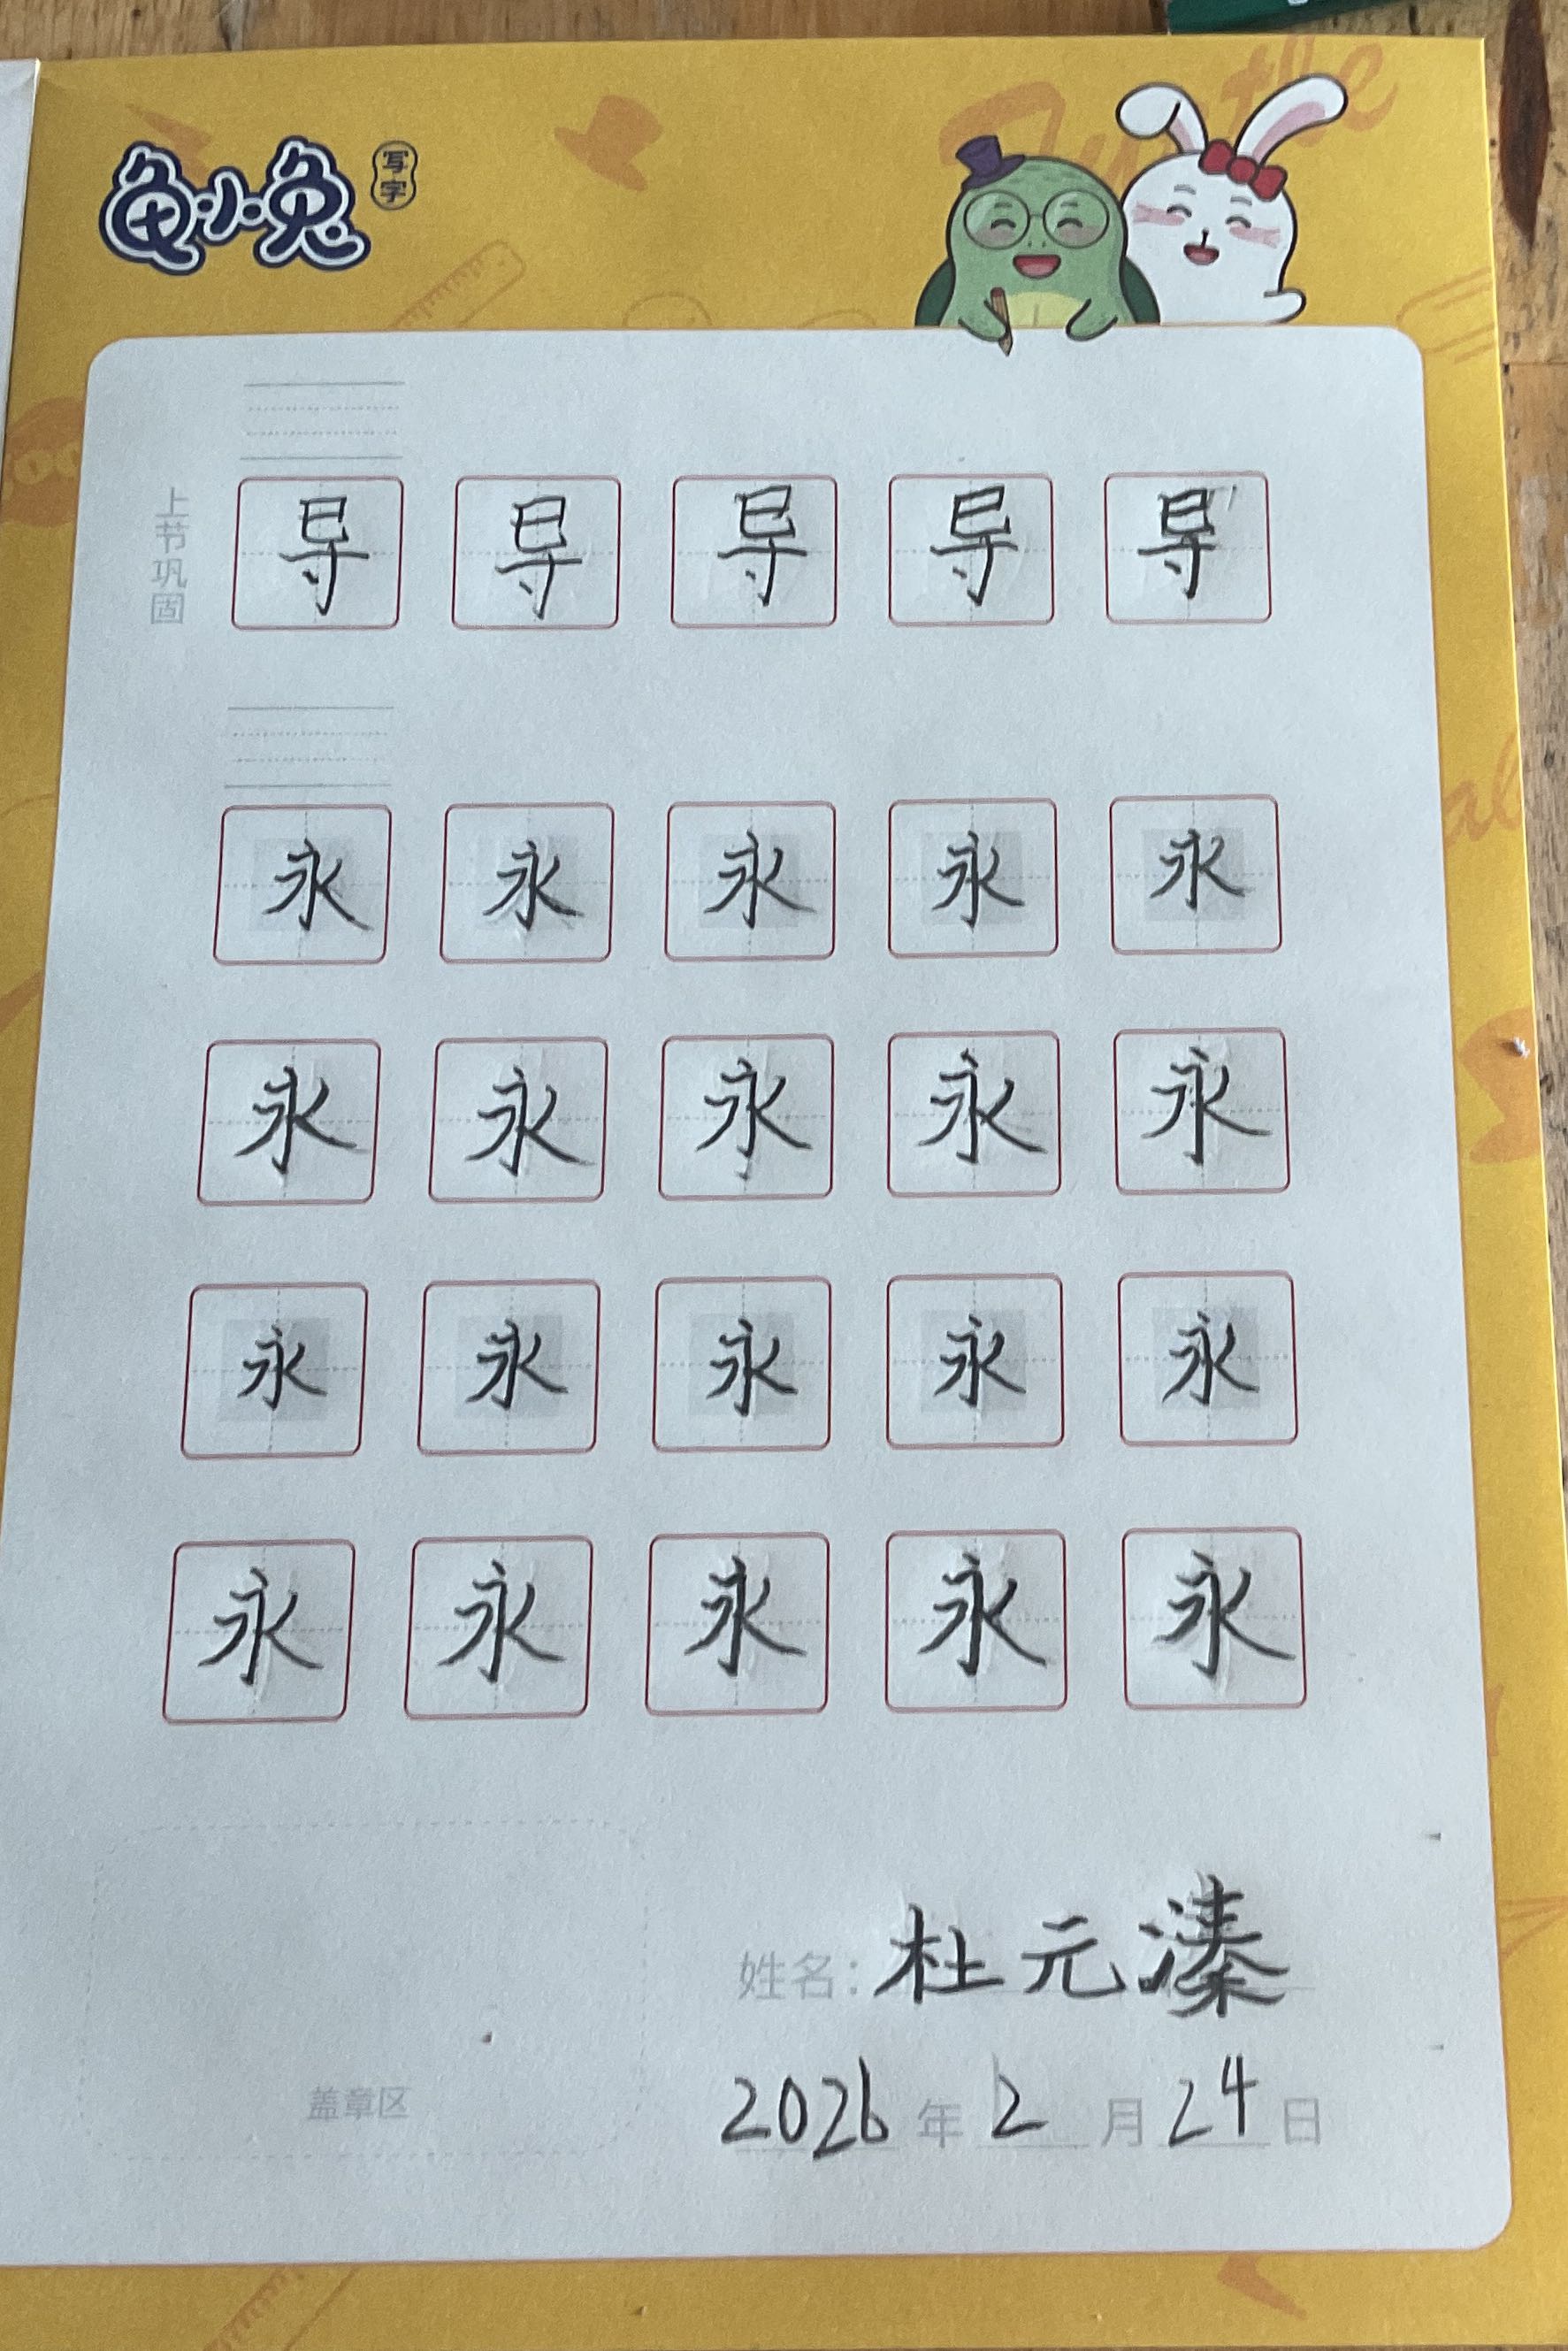 龟小兔 写字
上节巩固
导 导 导 导 导
永 永 永 永 永
永 永 永 永 永
永 永 永 永 永
永 永 永 永 永
姓名：杜元溱
盖章区
2026年2月24日